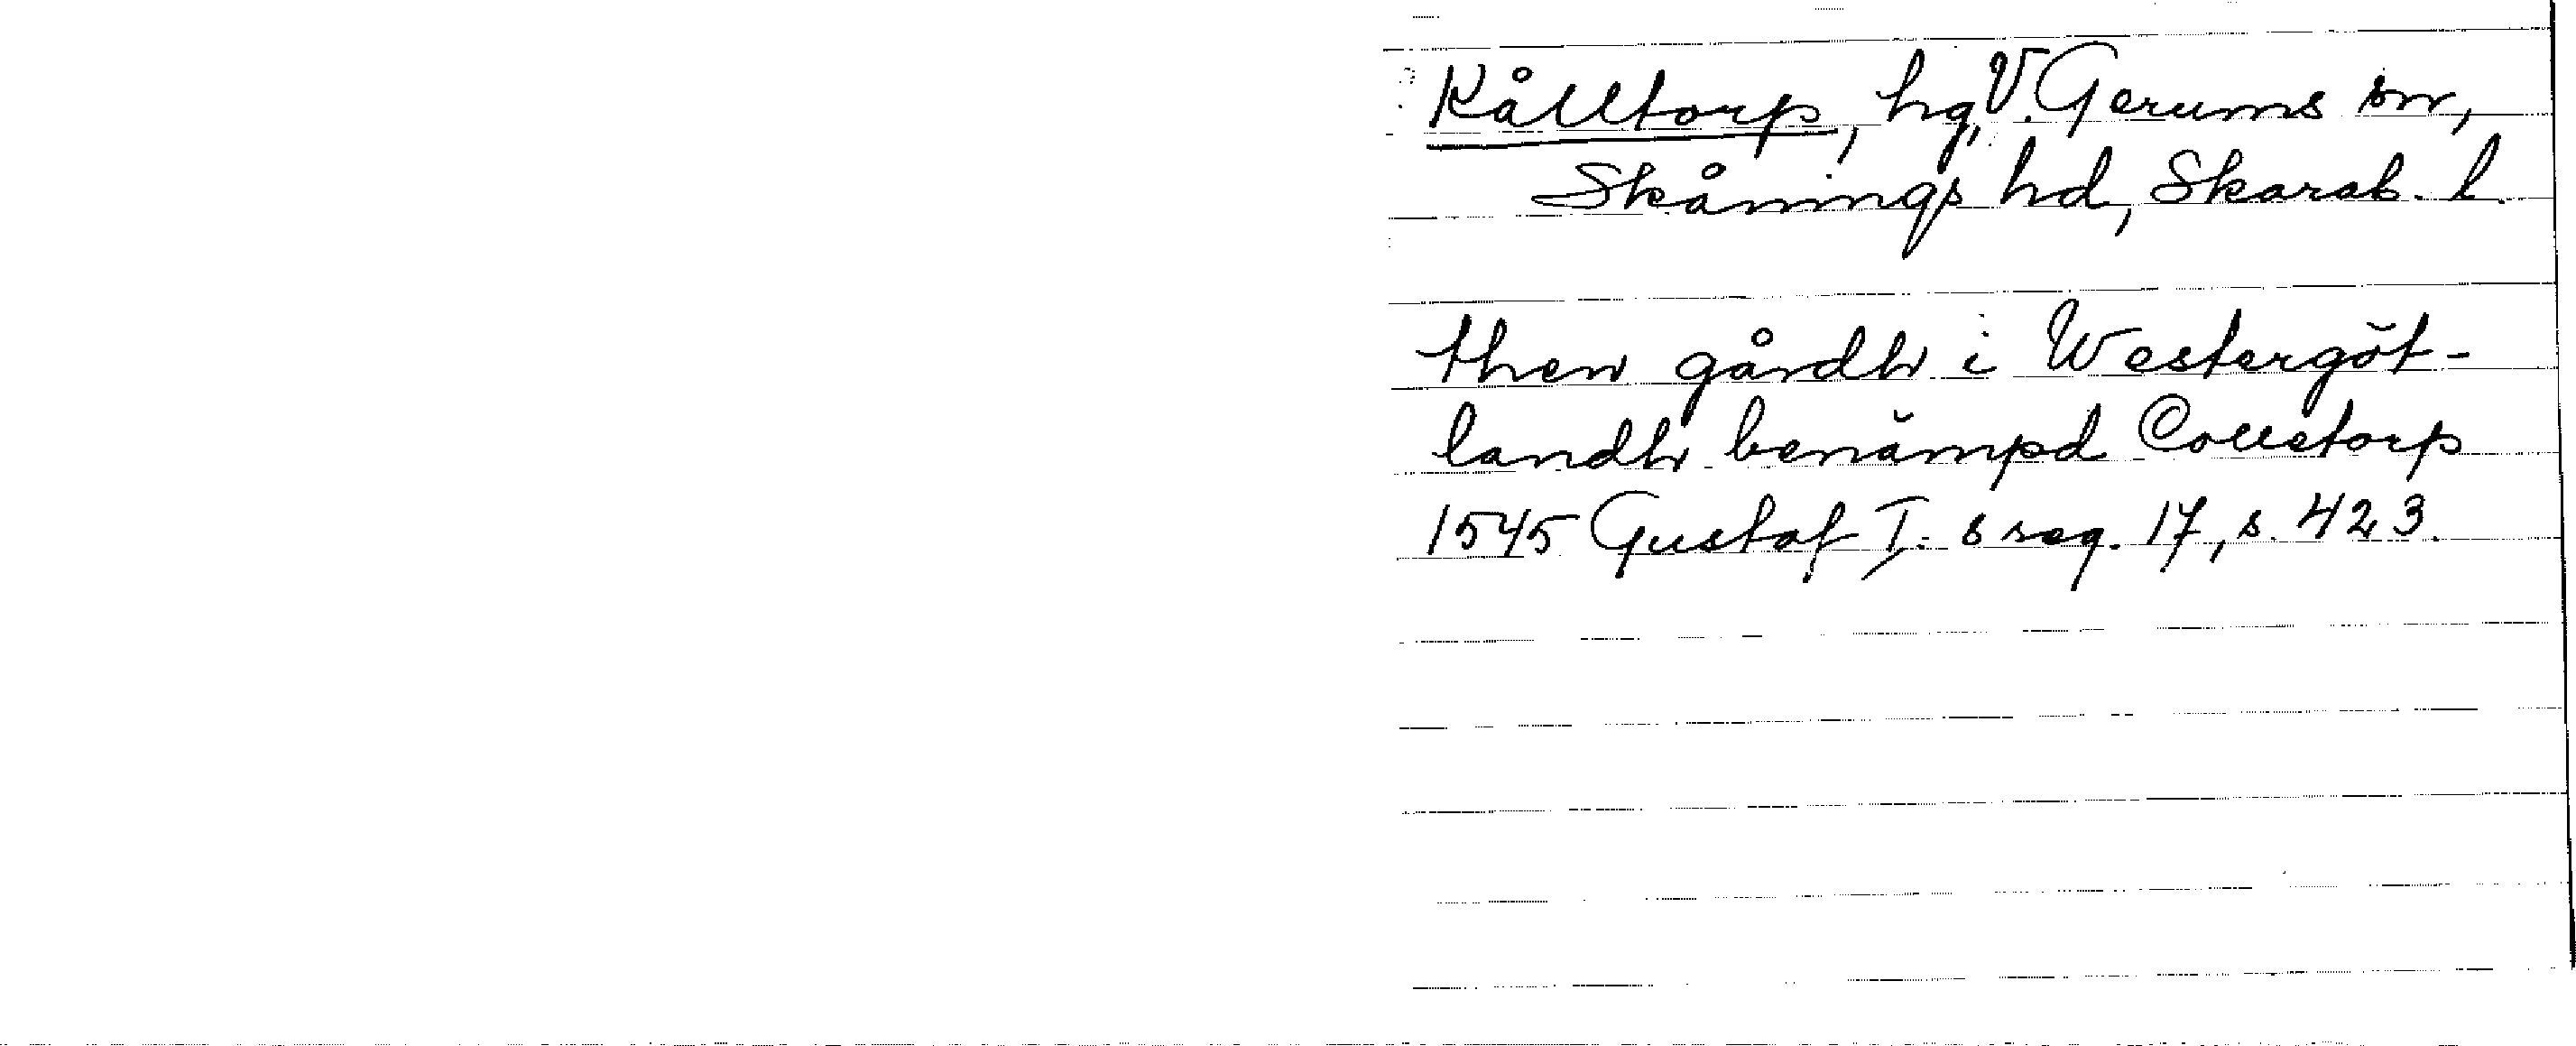 Kålltorp, hg, V. Gerums sn,
Skånings hd, Skarab. l.
then gårdh i Westergöt-
landh benämpd Colletorp
1545 Gustaf I:s reg. 17, s. 423.